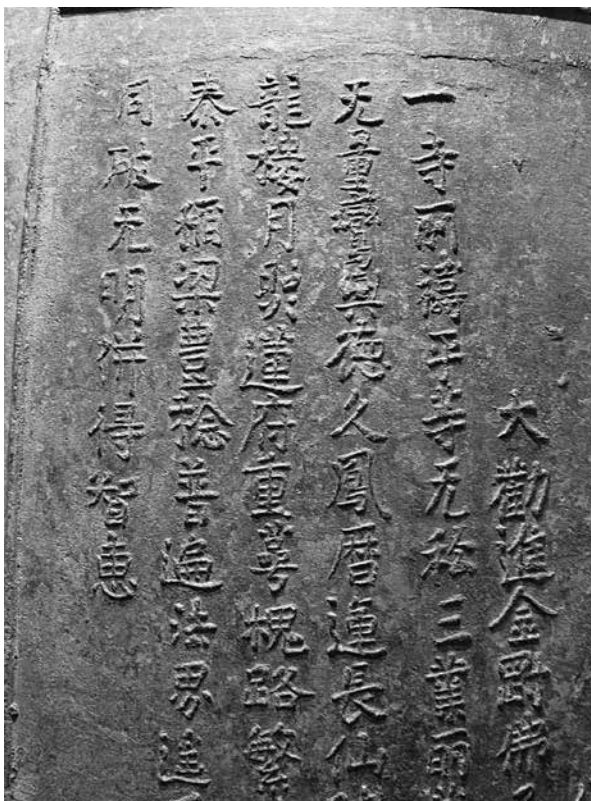 大勸進金剛佛
一寺所禱平等无私三業所
无量壽與德久鳳暦運長仙
龍樓月照蓮府重萼槐路繁
泰平稻粱豊稔普遍法界
同破无明併得智恵